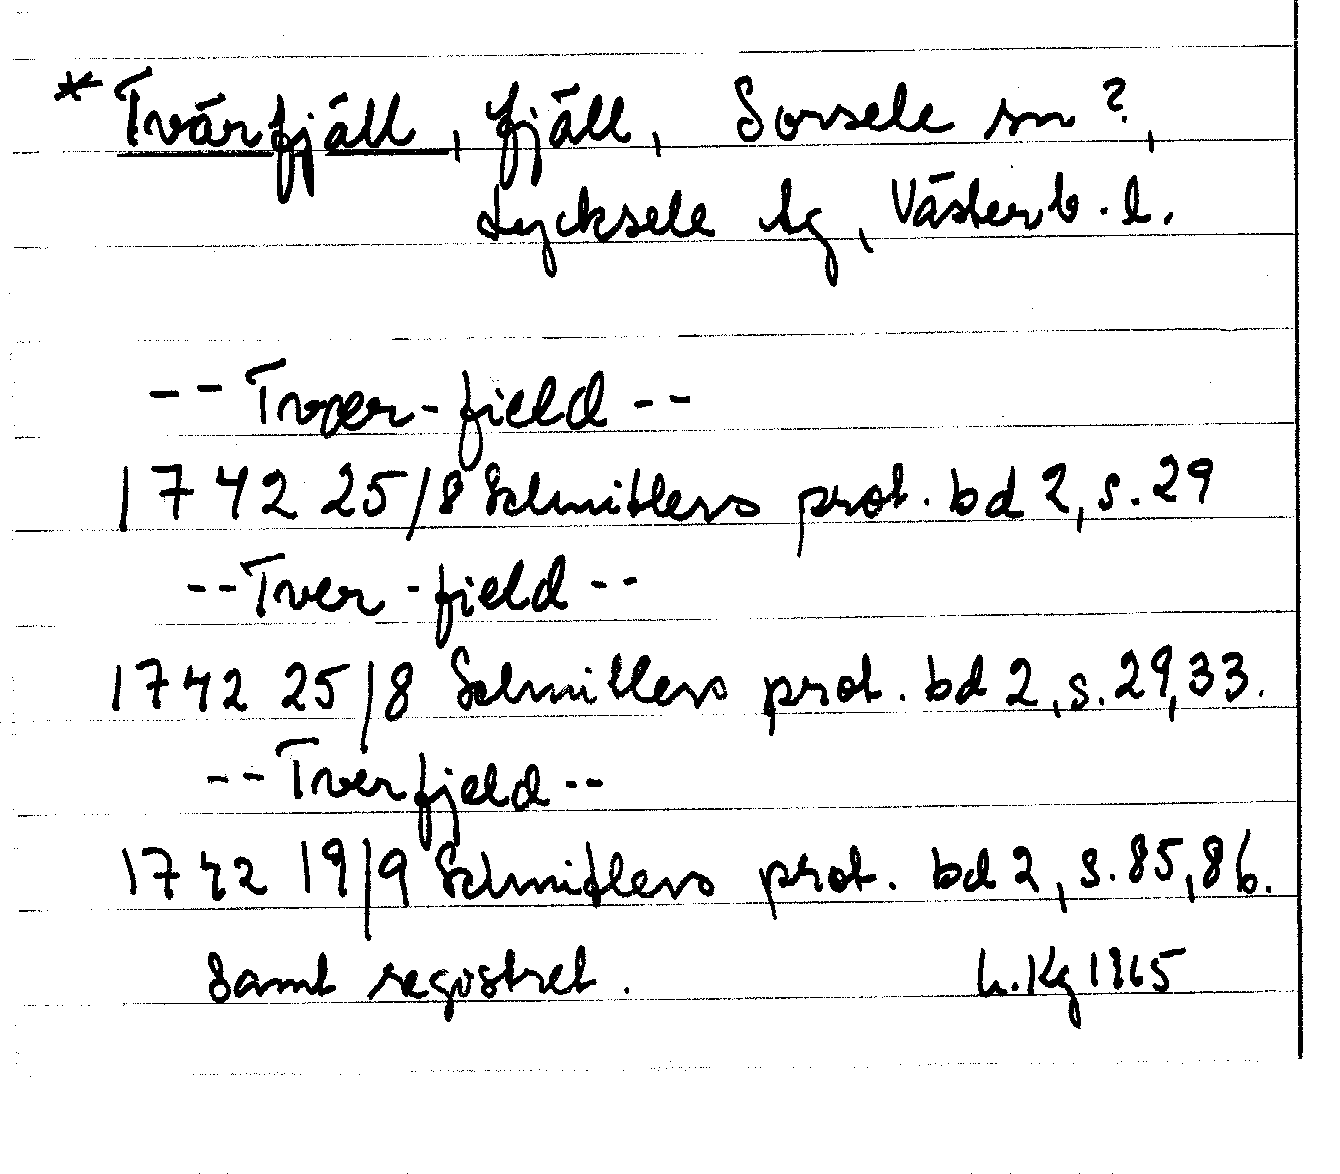 * Tvärfjäll, fjäll, Sorsele sn?,
Lycksele tg, Västerb. l.
-- Tvær-field --
1742 25/8 Schnitlers prot. bd 2, s. 29
-- Tver-field --
1742 25/8 Schnitlers prot. bd 2, s. 29, 33.
-- Tverfjeld --
1742 19/9 Schnitlers prot. bd 2, s. 85, 86.
Samt registret. L. Kg 1965